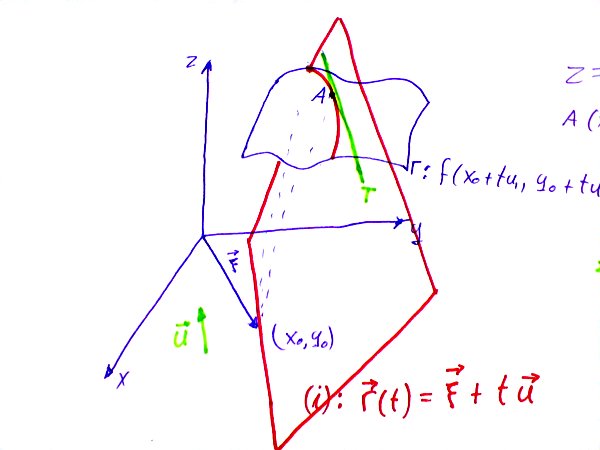 z
z =
A
A (
Γ: f(x₀+tu₁, y₀+tu
T
y
r⃗
u⃗
(x₀,y₀)
x
(i): r⃗(t) = r⃗ + t u⃗